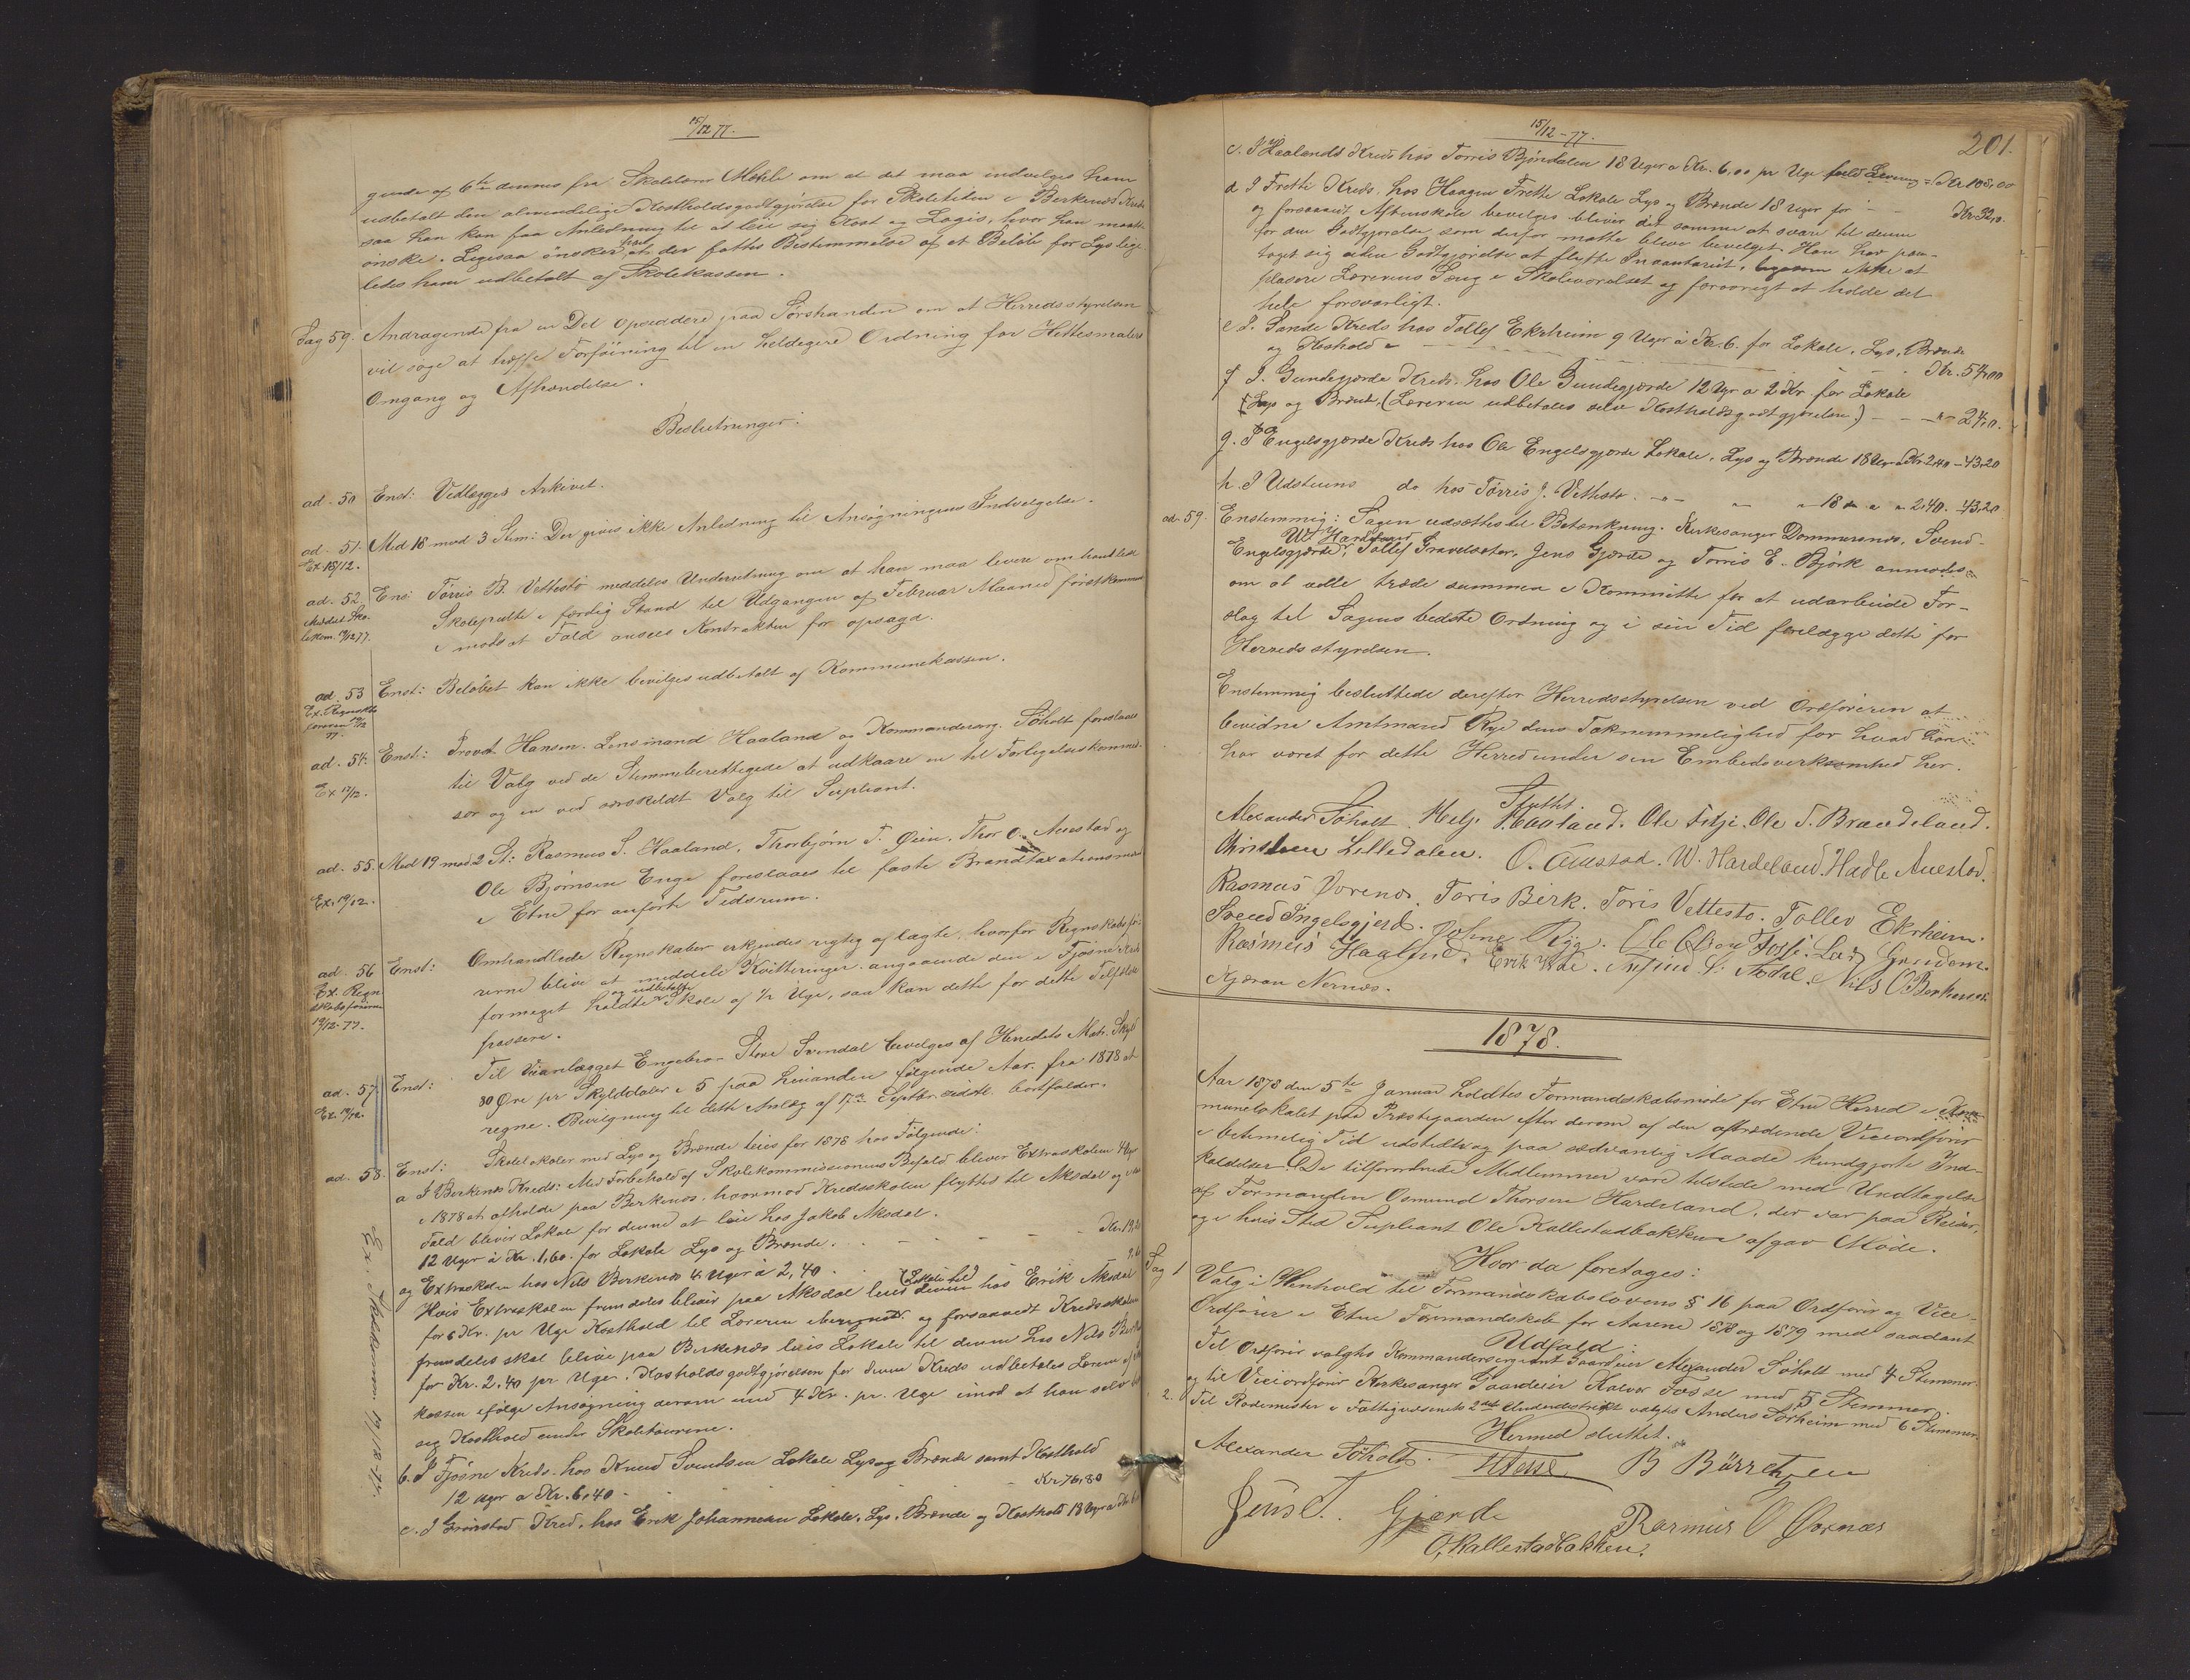 15/12 77.
gende af 6te dennes fra Skolelærer Mæhle om at det maa indvelges ham
udbetalt den almindelige Kostholdsgodtgjørelse for Skoletiden i Berkenes Kreds
saa han kan faa Anledning til at leie sig Kost og Logis, hvor han maatte
ønske. Ligesaa ønsker han at der fattes Bestemmelse af et Beløb for Lys lige-
ledes ham udbetalt af Skolekassen.
Sag 59. Andragende fra en Del Opsiddere paa Sørstranden om at Herredsstyrelsen
vil søge at træffe Forføining til en heldigere Ordning for
Omgang og Afhændelse.
Beslutninger:
ad. 50 Enst: Vedlægges Arkivet.
ad. 51. Med 18 mod 3 Stem: Der gives ikke Anledning til Ansøgningens Indvelgelse.
Ex 18/12.
ad. 52. Ens: Tørris B. Vettestø meddeles Underretning om at han maa levere omhandlede
Skolepulte i færdig Stand til Udgangen af Februar Maaned førstkommende
i modsat Fald ansees Kontrakten for opsagt.
ad. 53 Enst: Beløbet kan ikke bevilges udbetalt af Kommunekassen.
ad. 54. Enst: Provst Hansen, Lensmand Haaland og Kommanderserg. Søholt foreslaaes
til Valg ved de Stemmeberettigede at udkaare en til Forligelseskommis-
Ex 17/12.
sær og en ved særskildt Valg til Supleant.
ad. 55. Med 19 mod 2 St: Rasmus S. Haaland, Thorbjørn T. Øien, Thor O. Auestad og
Ole Bjørnsen Enge foreslaaes til faste Brandtaxationsmænd
Ex. 19/12.
i Etne for anførte Tidsrum.
ad. 56 Enst: Omhandlede Regnskaber erkjendes rigtig aflagte, hvorfor Regnskabsfø-
rerne blive at meddele Kvitteringer. angaaende den i Fjøsne Kreds
formeget holdte og udbetalte Skole af 1/2 Uge, saa kan dette for dette Tilfælde
passere.
ad. 57 Enst: Til Veianlægget Engebro - Store Svendal bevilges af Herredets Matr. Skyld
80 Øre pr Skylddaler i 5 paa hinanden følgende Aar fra 1878 at
Ex. 19/12.
regne. Bevilgning til dette Anlæg af 17de Septbr. sidstl. bortfalder.
ad. 58. Enst: Skolelokaler med Lys og Brænde leies for 1878 hos Følgende:
a I Berkenes Kreds: Med Forbehold af Skolekommissionens Bifald bliver Extraskolen 4 Uger
i 1878 at afholde paa Berkenes, hvormod Kredsskolen flyttes til Aksdal og i saa
Fald bliver Lokale for denne at leie hos Jakob Aksdal.
12 Uger à Kr. 1,60. for Lokale Lys og Brænde. Kr. 19,20
og Extraskolen hos Nils Berkenes 4 Uger à 2,40 9,60
Hvis Extraskolen fremdeles bliver paa Aksdal leies (Lokale til) denne hos Erik Aksdal
for 6 Kr. pr Uge Kosthold til Læreren og forsaavidt Kredsskolen
fremdeles skal blive paa Berkenes leies Lokale til denne hos Nils Berkenes
for Kr. 2,40 pr Uge. Kostholdsgodtgjørelsen for denne Kreds udbetales Læreren af
kassen ifølge Ansøgning derom med 4 Kr. pr. Uge imod at han selv
sig Kosthold under Skoleturene.
b. I Fjøsne Kreds hos Knud Svendsen Lokale Lys og Brænde samt Kosthold
12 Uger a Kr. 6,40 Kr 76,80
c. I Grønstad Kred. hos Erik Johannesen Lokale, Lys, Brænde og Kosthold 18 Uger a
Ex. Skolekomm 19/12 77.
15/12-77.
201.
c. I Haalands Kreds hos Torris Bjøndalen 18 Uger a Kr. 6,00 pr Uge fuld Levering = Kr 108,00
d I Frette Kreds. hos Haagen Frette Lokale Lys og Brænde 18 Uger for Kr. 32,0.
og forsaavidt Aftenskole bevilges bliver det samme at svare til denne
for den Godtgjørelse som derfor maatte blive bevilget. Han har paa-
taget sig uden Godtgjørelse at flytte Inventariet, ikke at
plasere Lærerens Seng i Skoleværelset og forøvrigt at holde det
hele forsvarligt.
e I. Sande Kreds hos Tollef Ekrheim 9 Uger à Kr. 6. for Lokale, Lys, Brænde
og Kosthold Kr. 54,00
f I. Gundegjærde Kreds. hos Ole Gundegjærde 12 Uger a 2 Kr for Lokale
Lys og Brænde, (Læreren udbetales selv Kostholdsgodtgjørelsen) 24,0.
g. I Engelsgjærde Kreds hos Ole Engelsgjærde Lokale, Lys og Brænde 18 Uger a Kr 2,40 - 43,20
h. I Udstuns do hos Tørris J. Vettestø 18 2,40. 43,20
ad. 59. Enstemmig: Sagen udsættes til Betænkning. Kirkesanger Dommersnes, Svend
Engelsgjærde, W Hardeland, Tollef Gravelsæter, Jens Gjærde og Torris E. Bjørk anmodes
om at ville træde sammen i Kommitte for at udarbeide For-
slag til Sagens bedste Ordning og i sin Tid forelægge dette for
Herredsstyrelsen.
Enstemmig besluttede derefter Herredsstyrelsen ved Ordføreren at
bevidne Amtmand Rye dens Taknemmelighed for hvad han
har været for dette Herred under sin Embedsvirksomhed her.
Sluttet.
Alexander Søholt. Helj. Haaland. Ole Fitje. Ole T. Brandeland.
Christen Lilledalen. O. Auestad. W. Hardeland. Hadle Auestad.
Rasmus Vørenes. Toris Birk. Toris Vettestø. Tollev Ekrheim.
Svend Ingelsgjerd. Johne Rygg. Ole Olsen Fosse. Lars Grindem.
Rasmus Haaland. Erik Nils O Berkenes.
Nernæs.
1878.
Aar 1878 den 5te Januar holdtes Formandskabsmøde for Etne Herred i Kom-
munelokalet paa Præstegaarden efter derom af den aftrædende Viceordfører
i betimelig Tid udstedte og paa sædvanlig Maade kundgjorte Ind-
kaldelser. De tilforordnede Medlemmer vare tilstede med Undtagelse
af Formanden Osmund Thorsen Hardeland, der var paa Reiser,
og i hvis Sted Supleant Ole Kallestadbakken afgav Møde.
Hvor da foretages:
Sag 1 Valg i Henhold til Formandskabslovens § 16 paa Ordfører og Vice-
Ordfører i Etne Formandskab for Aarene 1878 og 1879 med saadant
Udfald:
Til Ordfører valgtes Kommandersergiant Gaardeier Alexander Søholt med 4 Stemmer
og til Viceordfører Kirkesanger Gaardeier Halvor Fosse med 5 Stemmer.
2. Til Rodemester i Fattigvæsenets 2det Underdistrikt valgtes Anders Sørheim med 6 Stemmer.
Hermed sluttet.
Alexander Søholt. HFosse B Børretzen
Jens T. Gjerde Rasmus O Vørnæs
O, Kallestadbakken.